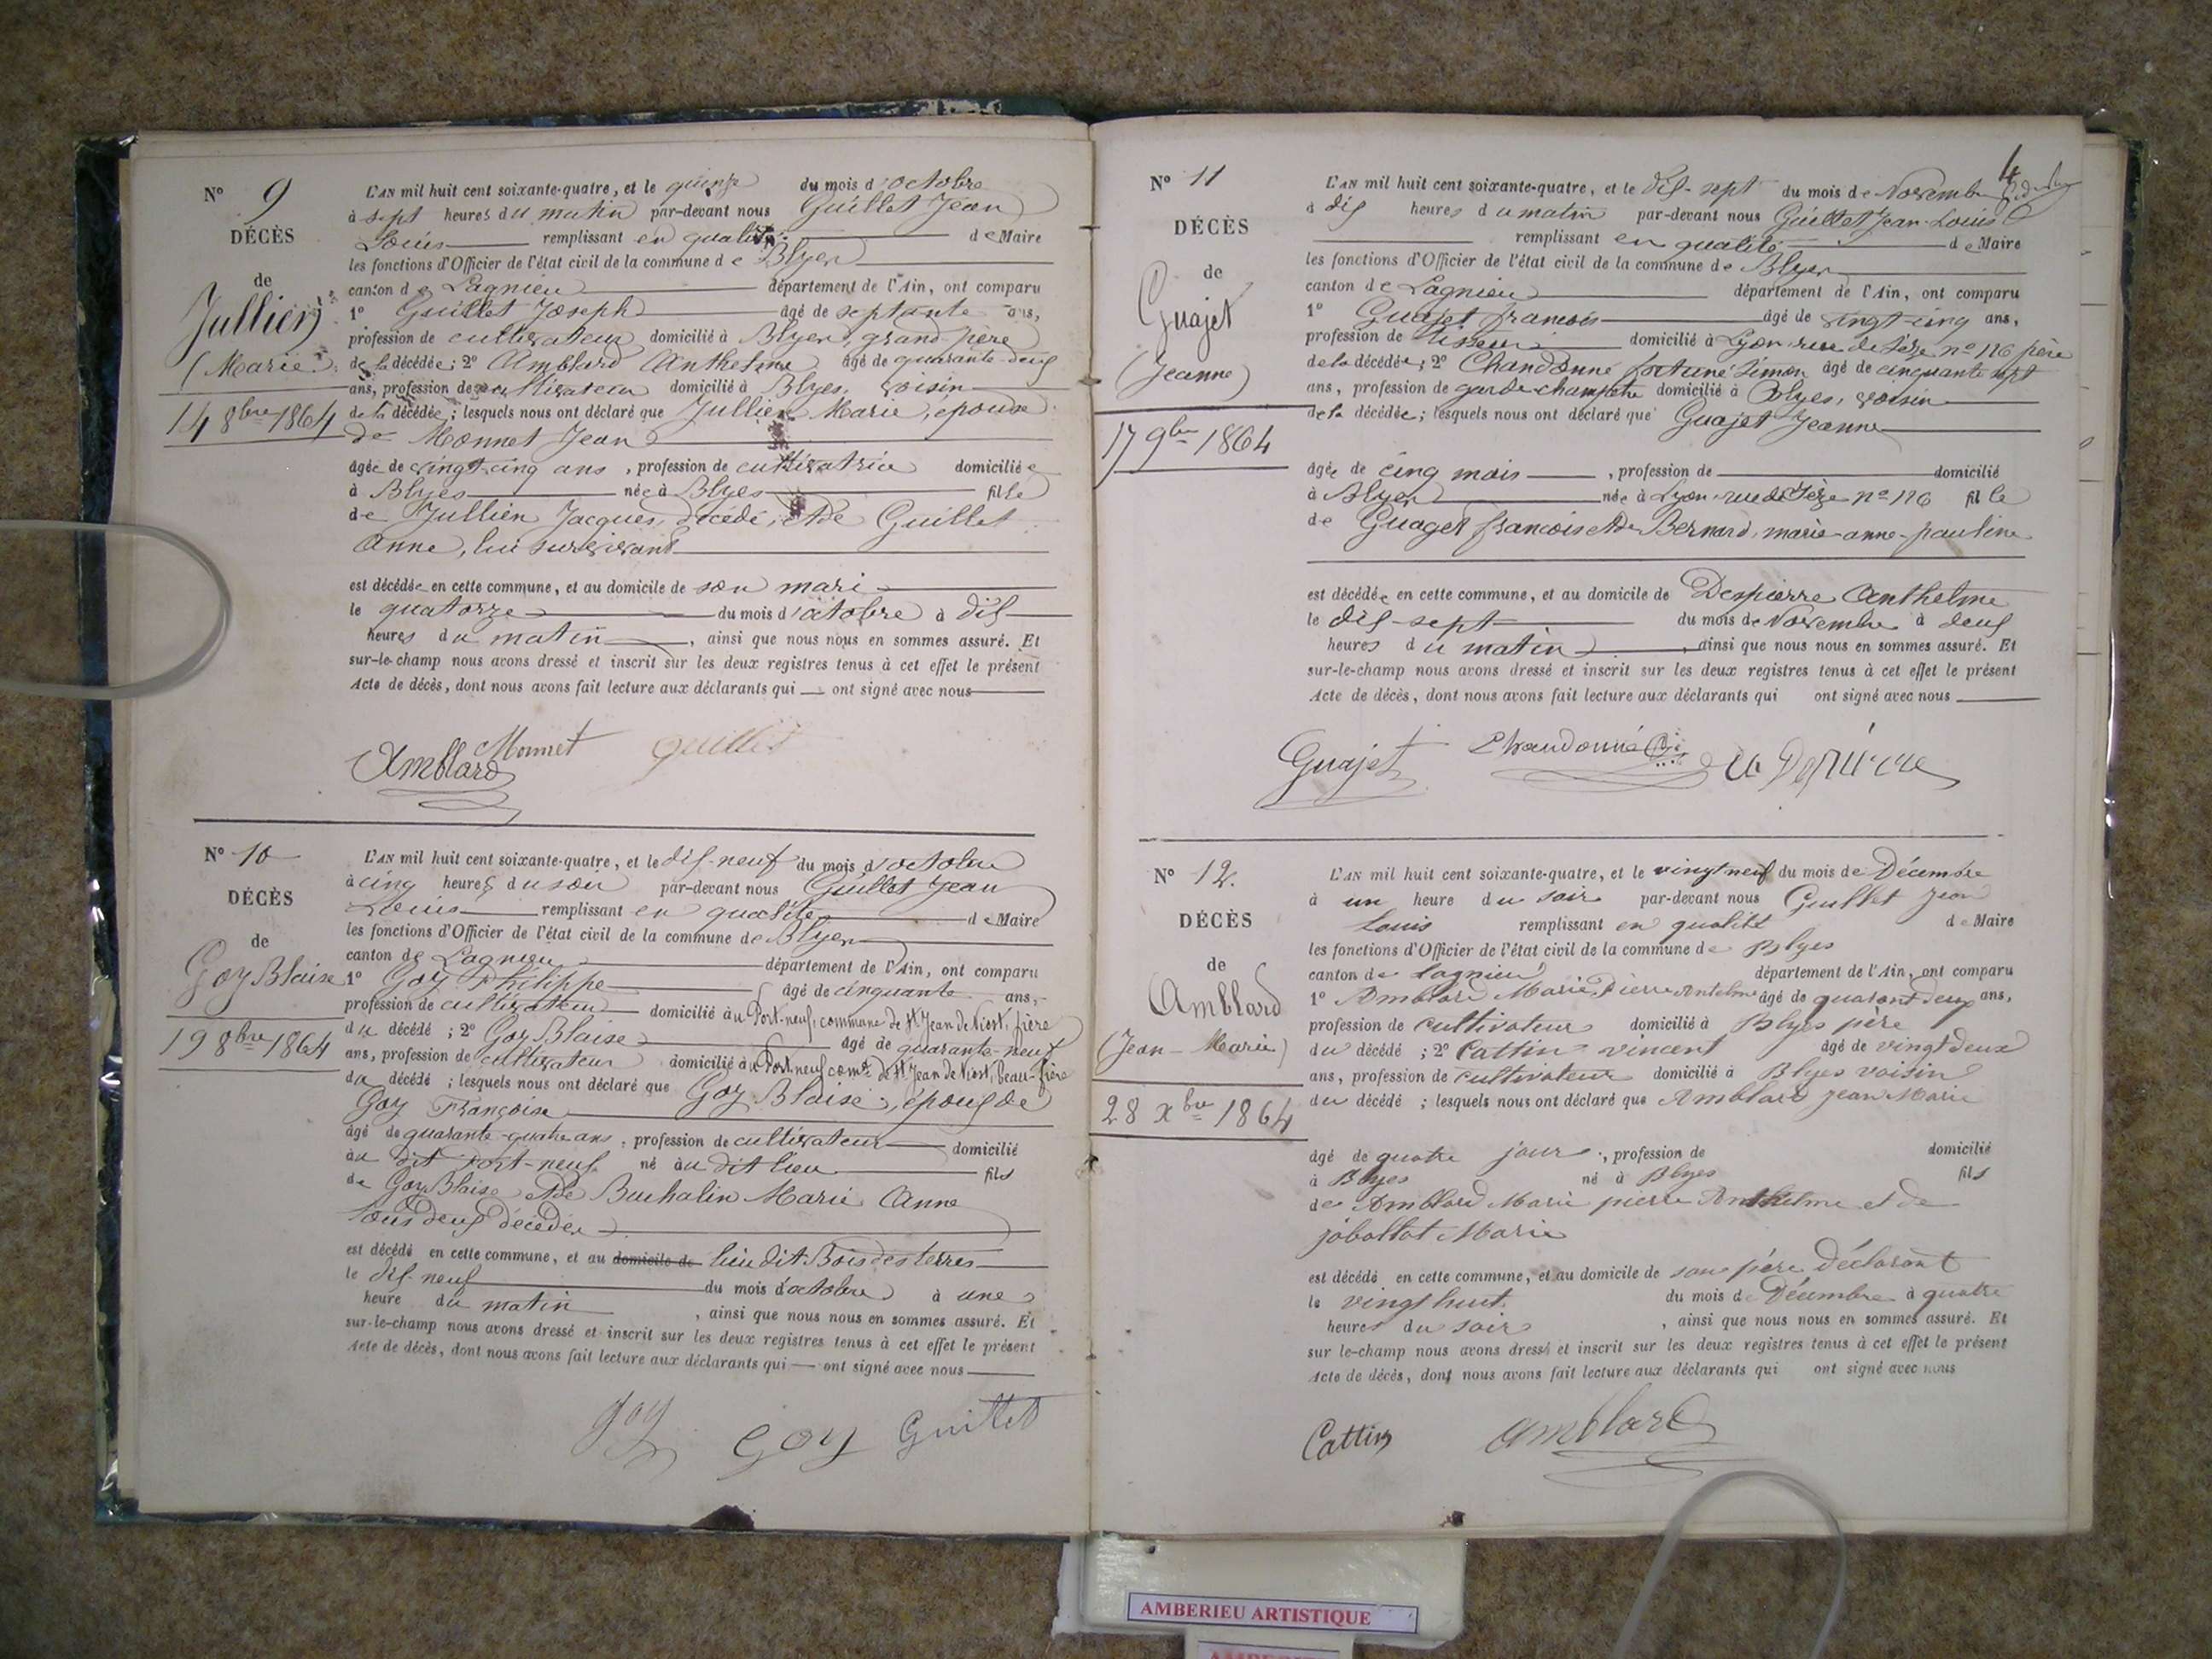 N° 9
DÉCÈS
de
Jullien
(Marie)
14 8bre 1864
L'AN mil huit cent soixante-quatre, et le quinze du mois d'octobre
à sept heures du matin par-devant nous Guillet Jean
Louis remplissant en qualité de Maire
les fonctions d'Officier de l'état civil de la commune de Blyes
canton de Lagnieu département de l'Ain, ont comparu
1° Guillet Joseph âgé de septante ans,
profession de cultivateur domicilié à Blyes, grand père
de la décédée; 2° Amblard Anthelme âgé de quarante-deux
ans, profession de cultivateur domicilié à Blyes, voisin
de la décédée; lesquels nous ont déclaré que Jullien Marie, épouse
de Monnet Jean
âgée de vingt-cinq ans, profession de cultivatrice domiciliée
à Blyes née à Blyes fille
de Jullien Jacques, décédé, et de Guillet
Anne, lui survivant
est décédée en cette commune, et au domicile de son mari
le quatorze du mois d'octobre à dix
heures du matin, ainsi que nous nous en sommes assuré. Et
sur-le-champ nous avons dressé et inscrit sur les deux registres tenus à cet effet le présent
Acte de décès, dont nous avons fait lecture aux déclarants qui ont signé avec nous
Monnet Guillet
Amblard
N° 10
DÉCÈS
de
Goy Blaise
19 8bre 1864
L'AN mil huit cent soixante-quatre, et le dix-neuf du mois d'octobre
à cinq heures du soir par-devant nous Guillet Jean
Louis remplissant en qualité de Maire
les fonctions d'Officier de l'état civil de la commune de Blyes
canton de Lagnieu département de l'Ain, ont comparu
1° Goy Philippe âgé de cinquante ans,
profession de cultivateur domicilié au Port-neuf, commune de St Jean de Niost, frère
du décédé; 2° Goy Blaise âgé de quarante-neuf
ans, profession de cultivateur domicilié au Port neuf come de St Jean de Niost, beau-frère
du décédé; lesquels nous ont déclaré que Goy Blaise, époux de
Goy Françoise
âgé de quarante-quatre ans, profession de cultivateur domicilié
au dit Port-neuf né au dit lieu fils
de Goy Blaise et de Buchalin Marie Anne
tous deux décédés
est décédé en cette commune, et au domicile de lieu dit Bois des terres
le dix-neuf du mois d'octobre à une
heure du matin, ainsi que nous nous en sommes assuré. Et
sur-le-champ nous avons dressé et inscrit sur les deux registres tenus à cet effet le présent
Acte de décès, dont nous avons fait lecture aux déclarants qui ont signé avec nous
goy goy Guillet
4
N° 11
DÉCÈS
de
Guajet
(Jeanne)
17 9bre 1864
L'AN mil huit cent soixante-quatre, et le dix-sept du mois de Novembre
à dix heures du matin par-devant nous Guillet Jean-Louis
remplissant en qualité de Maire
les fonctions d'Officier de l'état civil de la commune de Blyes
canton de Lagnieu département de l'Ain, ont comparu
1° Guajet francois âgé de vingt-cinq ans,
profession de tisseur domicilié à Lyon rue de Sèze n° 116 père
de la décédée; 2° Chandonné fortuné Simon âgé de cinquante sept
ans, profession de garde-champêtre domicilié à Blyes, voisin
de la décédée; lesquels nous ont déclaré que Guajet Jeanne
âgée de cinq mois, profession de domicilié
à Blyes née à Lyon rue de Sèze n° 116 fille
de Guaget francois et de Bernard, marie-anne-pauline
est décédée en cette commune, et au domicile de Despierre Anthelme
le dix-sept du mois de Novembre à deux
heures du matin, ainsi que nous nous en sommes assuré. Et
sur-le-champ nous avons dressé et inscrit sur les deux registres tenus à cet effet le présent
Acte de décès, dont nous avons fait lecture aux déclarants qui ont signé avec nous
Guajet Chandonné
N° 12.
DÉCÈS
de
Amblard
(Jean-Marie)
28 xbre 1864
L'AN mil huit cent soixante-quatre, et le vingt neuf du mois de Décembre
à un heure du soir par-devant nous Guillet Jean
Louis remplissant en qualité de Maire
les fonctions d'Officier de l'état civil de la commune de Blyes
canton de Lagnieu département de l'Ain, ont comparu
1° Amblard Marie Pierre Antelme âgé de quarant deux ans,
profession de cultivateur domicilié à Blyes père
du décédé; 2° Cattin vincent âgé de vingt deux
ans, profession de cultivateur domicilié à Blyes voisin
du décédé; lesquels nous ont déclaré que Amblard Jean Marie
âgé de quatre jours, profession de domicilié
à Blyes né à Blyes fils
de Amblard Marie pierre Anthelme et de
jaboltat Marie
est décédé en cette commune, et au domicile de son père Déclarant
le vingt huit du mois de Décembre à quatre
heures du soir, ainsi que nous nous en sommes assuré. Et
sur le-champ nous avons dressé et inscrit sur les deux registres tenus à cet effet le présent
Acte de décès, dont nous avons fait lecture aux déclarants qui ont signé avec nous
Cattin Amblard
AMBERIEU ARTISTIQUE